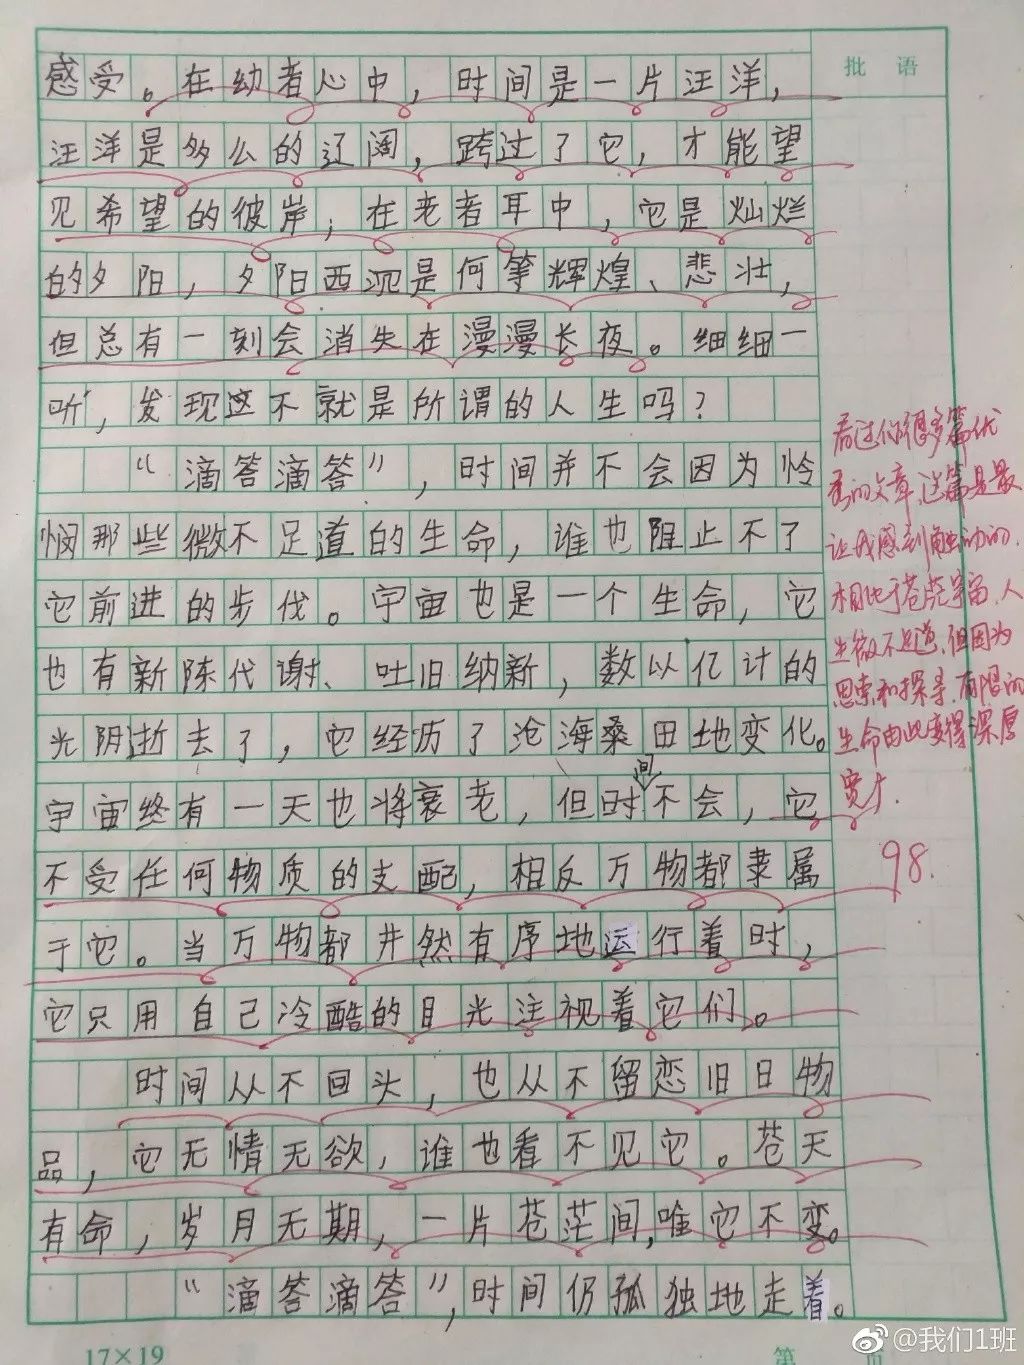 批 语
感受。在幼者心中，时间是一片汪洋，
汪洋是多么的辽阔，跨过了它，才能望
见希望的彼岸；在老者耳中，它是灿烂
的夕阳，夕阳西沉是何等辉煌、悲壮，
但总有一刻会消失在漫漫长夜。细细一
听，发现这不就是所谓的人生吗？
“滴答滴答”，时间并不会因为怜
悯那些微不足道的生命，谁也阻止不了
它前进的步伐。宇宙也是一个生命，它
也有新陈代谢、吐旧纳新，数以亿计的
光阴逝去了，它经历了沧海桑田地变化。
宇宙终有一天也将衰老，但时间不会，它
不受任何物质的支配，相反万物都隶属
于它。当万物都井然有序地运行着时，
它只用自己冷酷的目光注视着它们。
时间从不回头，也从不留恋旧日物
品，它无情无欲，谁也看不见它。苍天
有命，岁月无期，一片苍茫间，唯它不变。
“滴答滴答”，时间仍孤独地走着。
看过你很多篇优
秀的文章，这篇是最
让我感到触动的，
相比于苍茫宇宙，人
生微不足道，但因为
思索和探寻，有限的
生命由此变得深厚
宽广。
98.
17×19
第 页
@我们1班